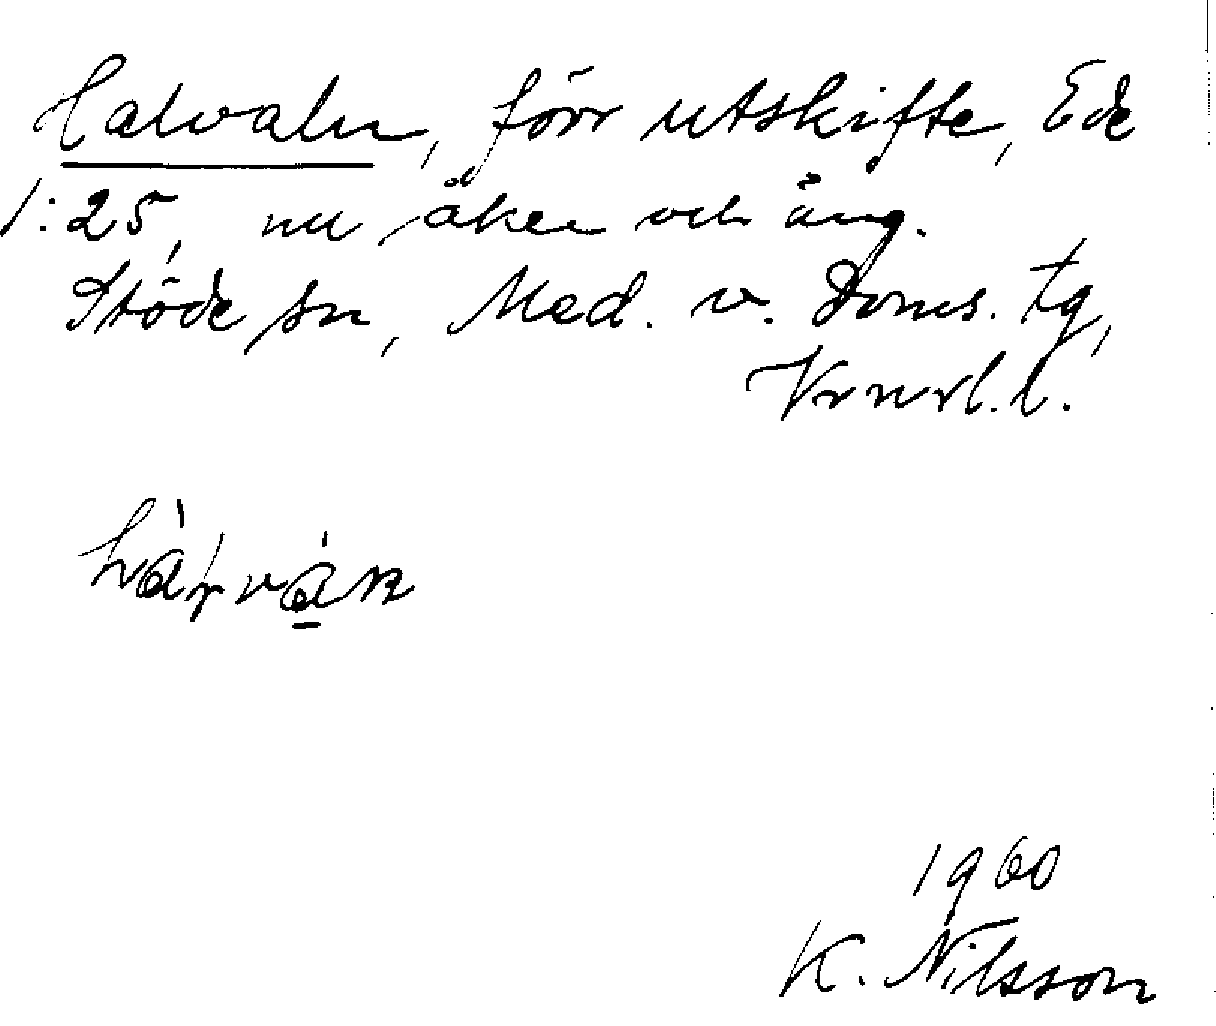 Halvalen, förr utskifte, Ede
1:25, nu åker och äng.
Stöde sn, Med. v. Doms. tg,
Vrnrl. l.
1960
K. Nilsson